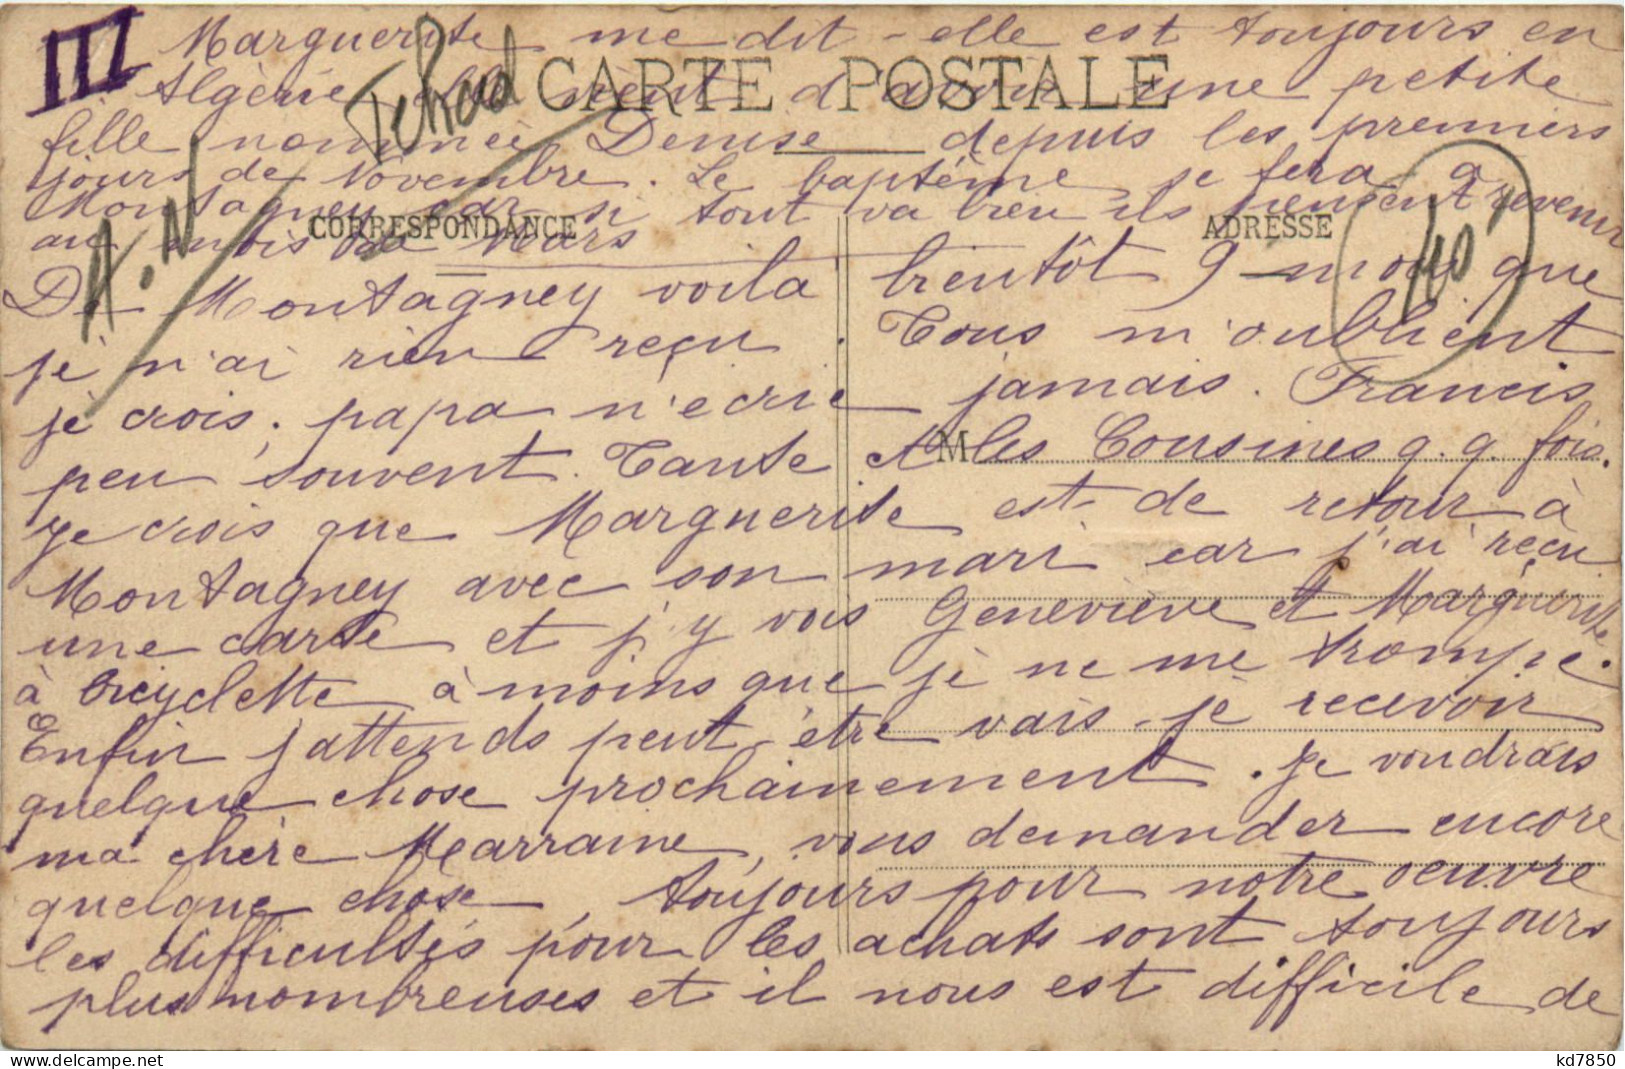 III Marguerite me dit - elle est toujours en
Algérie elle vient d'avoir une petite
fille nommée Denise depuis les premiers
jours de Novembre. Le baptème se fera à
Montagney car si tout va bien ils pensent revenir
au mois de Mars
CARTE POSTALE
CORRESPONDANCE
ADRESSE
A.N
40
De Montagney voila bientôt 9 mois que
je n'ai rien reçu. Tous m'oublient
je crois, papa n'écrie jamais. Francis
peu souvent. Tante et les Cousines q. q. fois.
M
Je crois que Marguerite est de retour à
Montagney avec son mari car j'ai reçu
une carte et j'y vois Geneviève et Marguerite
à bicyclette à moins que je ne me trompe.
Enfin j'attends peut-être vais-je recevoir
quelque chose prochainement. Je voudrais
ma chère Marraine, vous demander encore
quelque chose toujours pour notre oeuvre
les difficultés pour les achats sont toujours
plus nombreuses et il nous est difficile de
kd7850